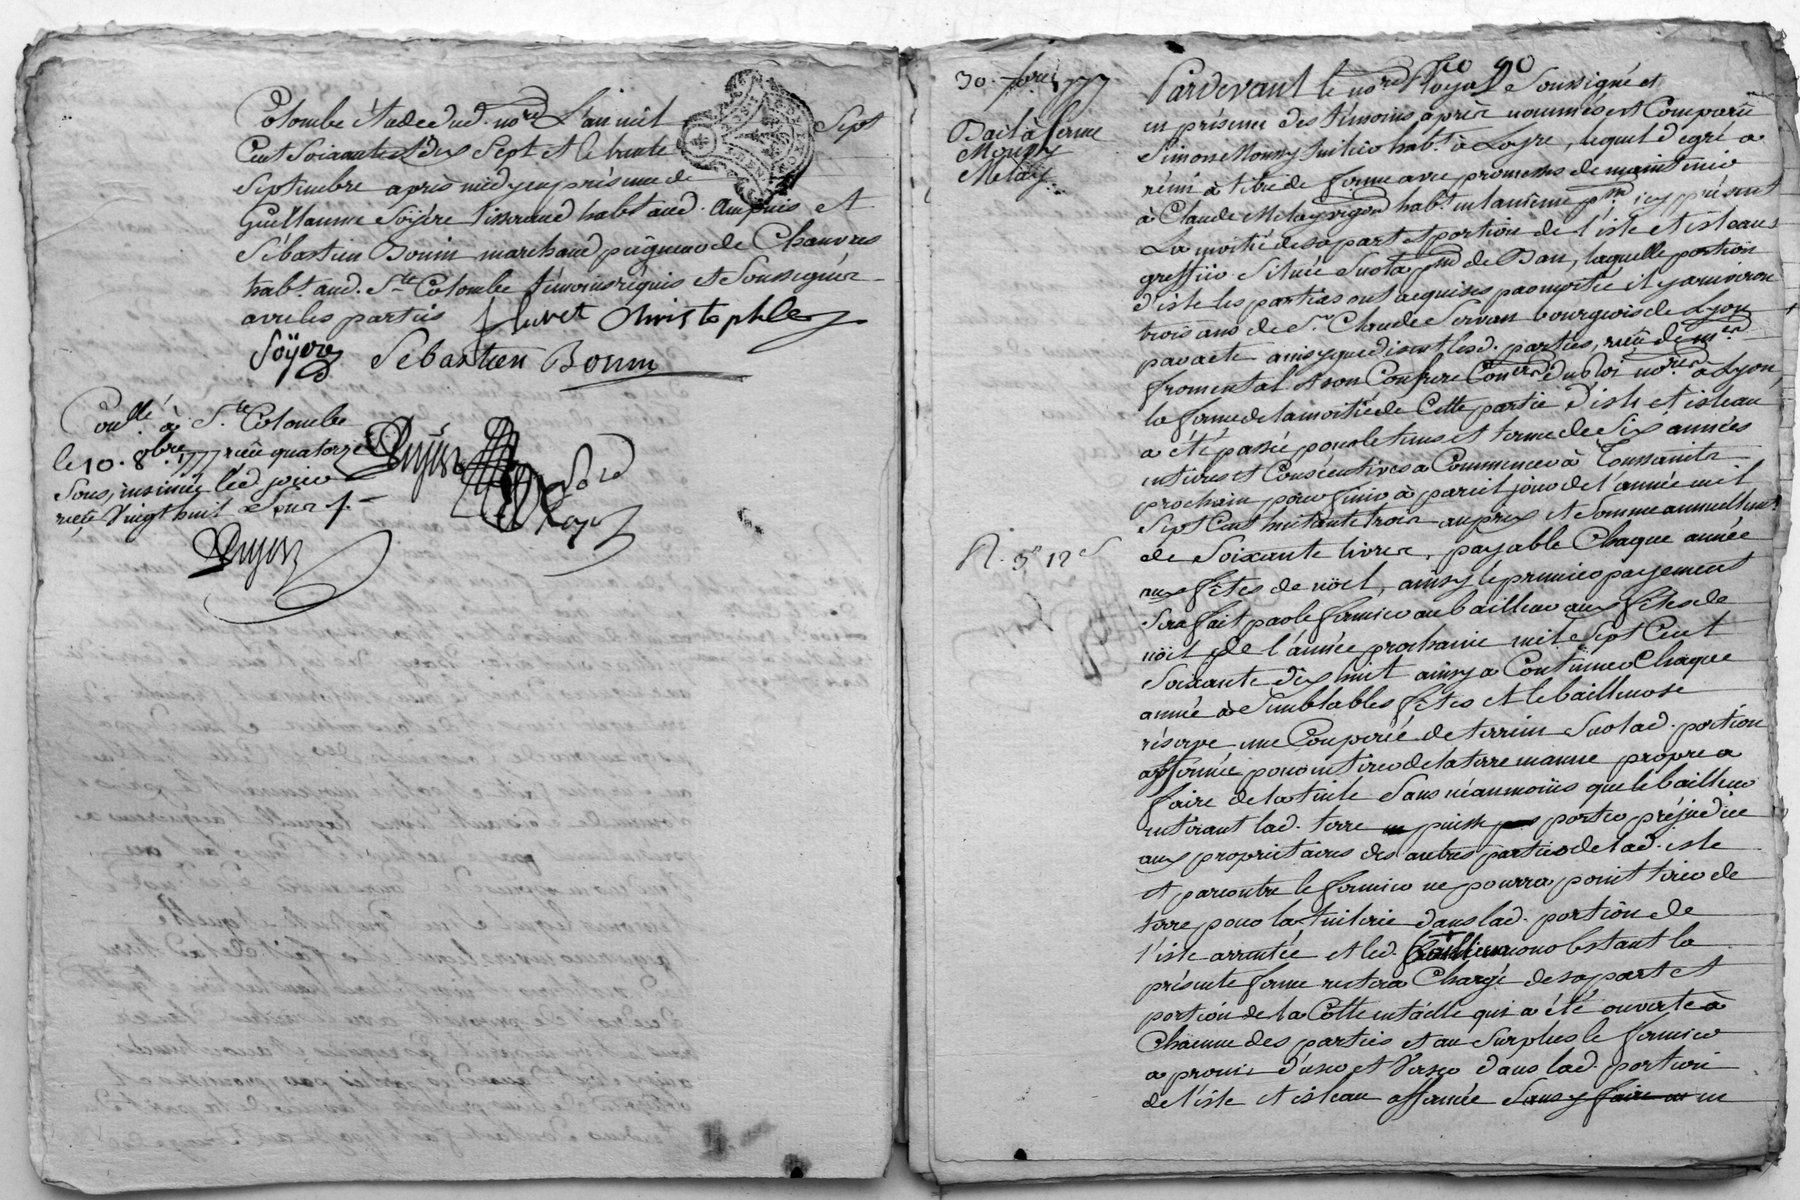 Colombe étude dud. nore L'an mil Sept
Cent Soixante et dix Sept et le trente
Septembre après midy en présence de
Guillaume Soÿere Tisserand habt. aud. Ampuis et
Sébastien Bonin marchand peigneur de Chanvres
habt. aud. Ste Colombe témoins réquis et Soussignés
avec les parties fleuret Christophle
Soÿere Sébastien Bonin
Conllé. à Ste Colombe
le 10. 8bre. 1777 reçu quatorze
Sous, insinué led jour
reçu Vingt huit
30. 7bre 1777
Bail à ferme
Mousy
Melay
Pardevant le nore Royal Soussigné et
en présence des témoins après nommés est Comparu
Simon Mousy tuilier habt. à Loyre, lequel de gré a
rémis à titre de ferme avec promesses de maintenir
à Claude Melay vigon habt. en la même psse. icy présent
La moitié de sa part et portion de l'isle et isleau
greffier Située Sur la psse de Ban, laquelle portion
d'isle les parties ont acquises par moitié il y a environ
trois ans de Sr. Claude Servan bourgeois de Lyon
par acte ainsy que disent lesd. parties, reçu de Me.
fromental et son Confrere Coners du Roi nores à Lyon,
la ferme de la moitié de Cette partie d'isle et isleau
a été passée pour le tems et terme de Six années
entieres et Consecutives a Commencer à Toussaints
prochain pour finir à pareil jour de l'année mil
Sept Cent huitante trois au prix et Somme annuellemt.
de Soixante livres, payable Chaque année
aux fêtes de noël, ainsy le premier payement
Sera fait par le fermier au bailleur aux fêtes de
noël de l'année prochaine mil Sept Cent
Soixante dix huit ainsy a Continuer Chaque
année à Semblables fêtes et le bailleur se
réserve une Couperée de terrein Sur lad. portion
affermée pour en tirer de la terre marne propre a
faire de la tuile Sans néanmoins que le bailleur
en tirant lad. terre puisse porter préjudice
aux propriétaires des autres parties de lad. isle
et par contre le fermier ne pourra point tirer de
terre pour la tuilerie dans lad. portion de
l'isle arrentée et led. bailleur nonobstant la
présente ferme restera Chargé de sa part et
portion de la Cotte en taille qui a été ouverte à
Chacune des parties et au Surplus le fermier
a promis d'user et Verser dans lad. portion
de l'isle et isleau affermée Sans y faire